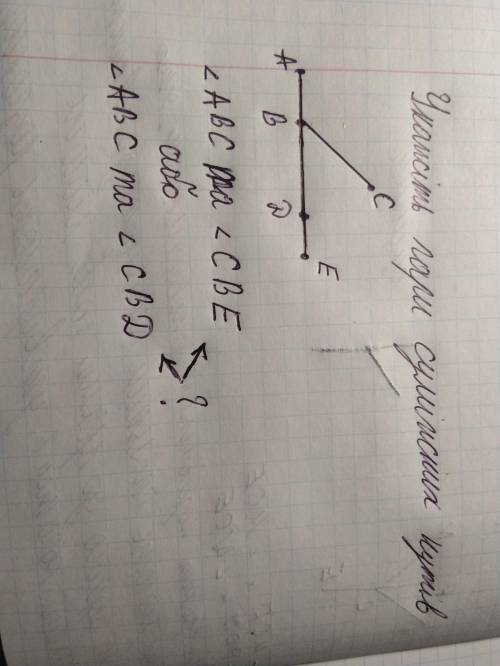 Укажіть пари суміжних кутів
A
B
C
D
E
∠ABC та ∠CBE
або
?
∠ABC та ∠CBD